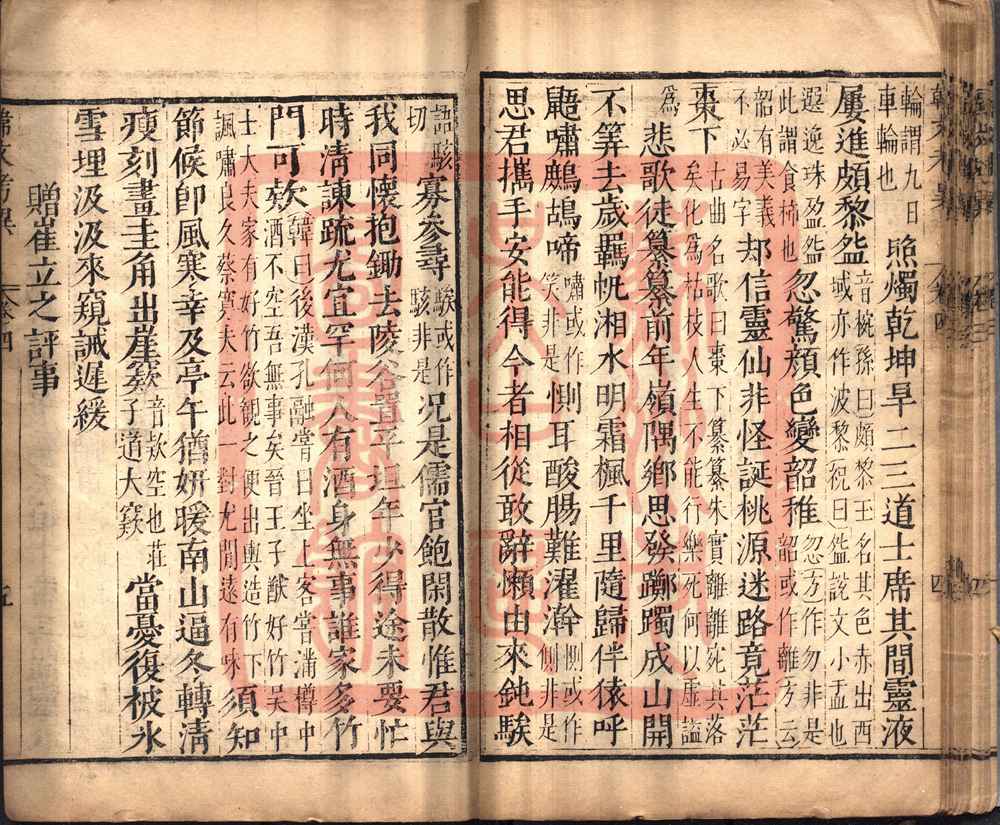 輪謂九日
車輪也
照燭乾坤旱二三道士席其間靈液
屢進頗黎盌
音椀孫曰頗黎玉名其色赤出西
域亦作波黎祝曰盌說文小盂也
選逸珠盈盌
此謂食柿也
忽驚顏色變韶稚
忽方作勿非是
韶或作離方云
韶有美義
不必易字
却信靈仙非怪誕桃源迷路竟茫茫
棗下
古曲名歌曰棗下纂纂朱實離離宛其落
矣化為枯枝人生不能行樂死何以虛謚
為
悲歌徒纂纂前年嶺隅鄉思發躑躅成山開
不筭去歲羈帆湘水明霜楓千里隨歸伴猿呼
鼯嘯鷓鴣啼
嘯或作
笑非是
惻耳酸腸難濯澣
惻或作
側非是
思君攜手安能得今者相從敢辭懶由來鈍騃
語駭
切
寡參尋
騃或作
駭非是
況是儒官飽閑散惟君與
我同懷抱鋤去陵谷置平坦年少得途未要忙
時清諫疏尤宜罕何人有酒身無事誰家多竹
門可欵
韓曰後漢孔融常曰坐上客常滿樽中
酒不空吾無事矣晉王子猷好竹吳中
士大夫家有好竹欲觀之便出輿造竹下
諷嘯良久蔡寬夫云此一對尤閒遠有味
須知
節候即風寒幸及亭午猶妍暖南山逼冬轉清
瘦刻畫圭角出崖窾
音欵空也莊
子道大窾
當憂復被氷
雪埋汲汲來窺誡遲緩
贈崔立之評事